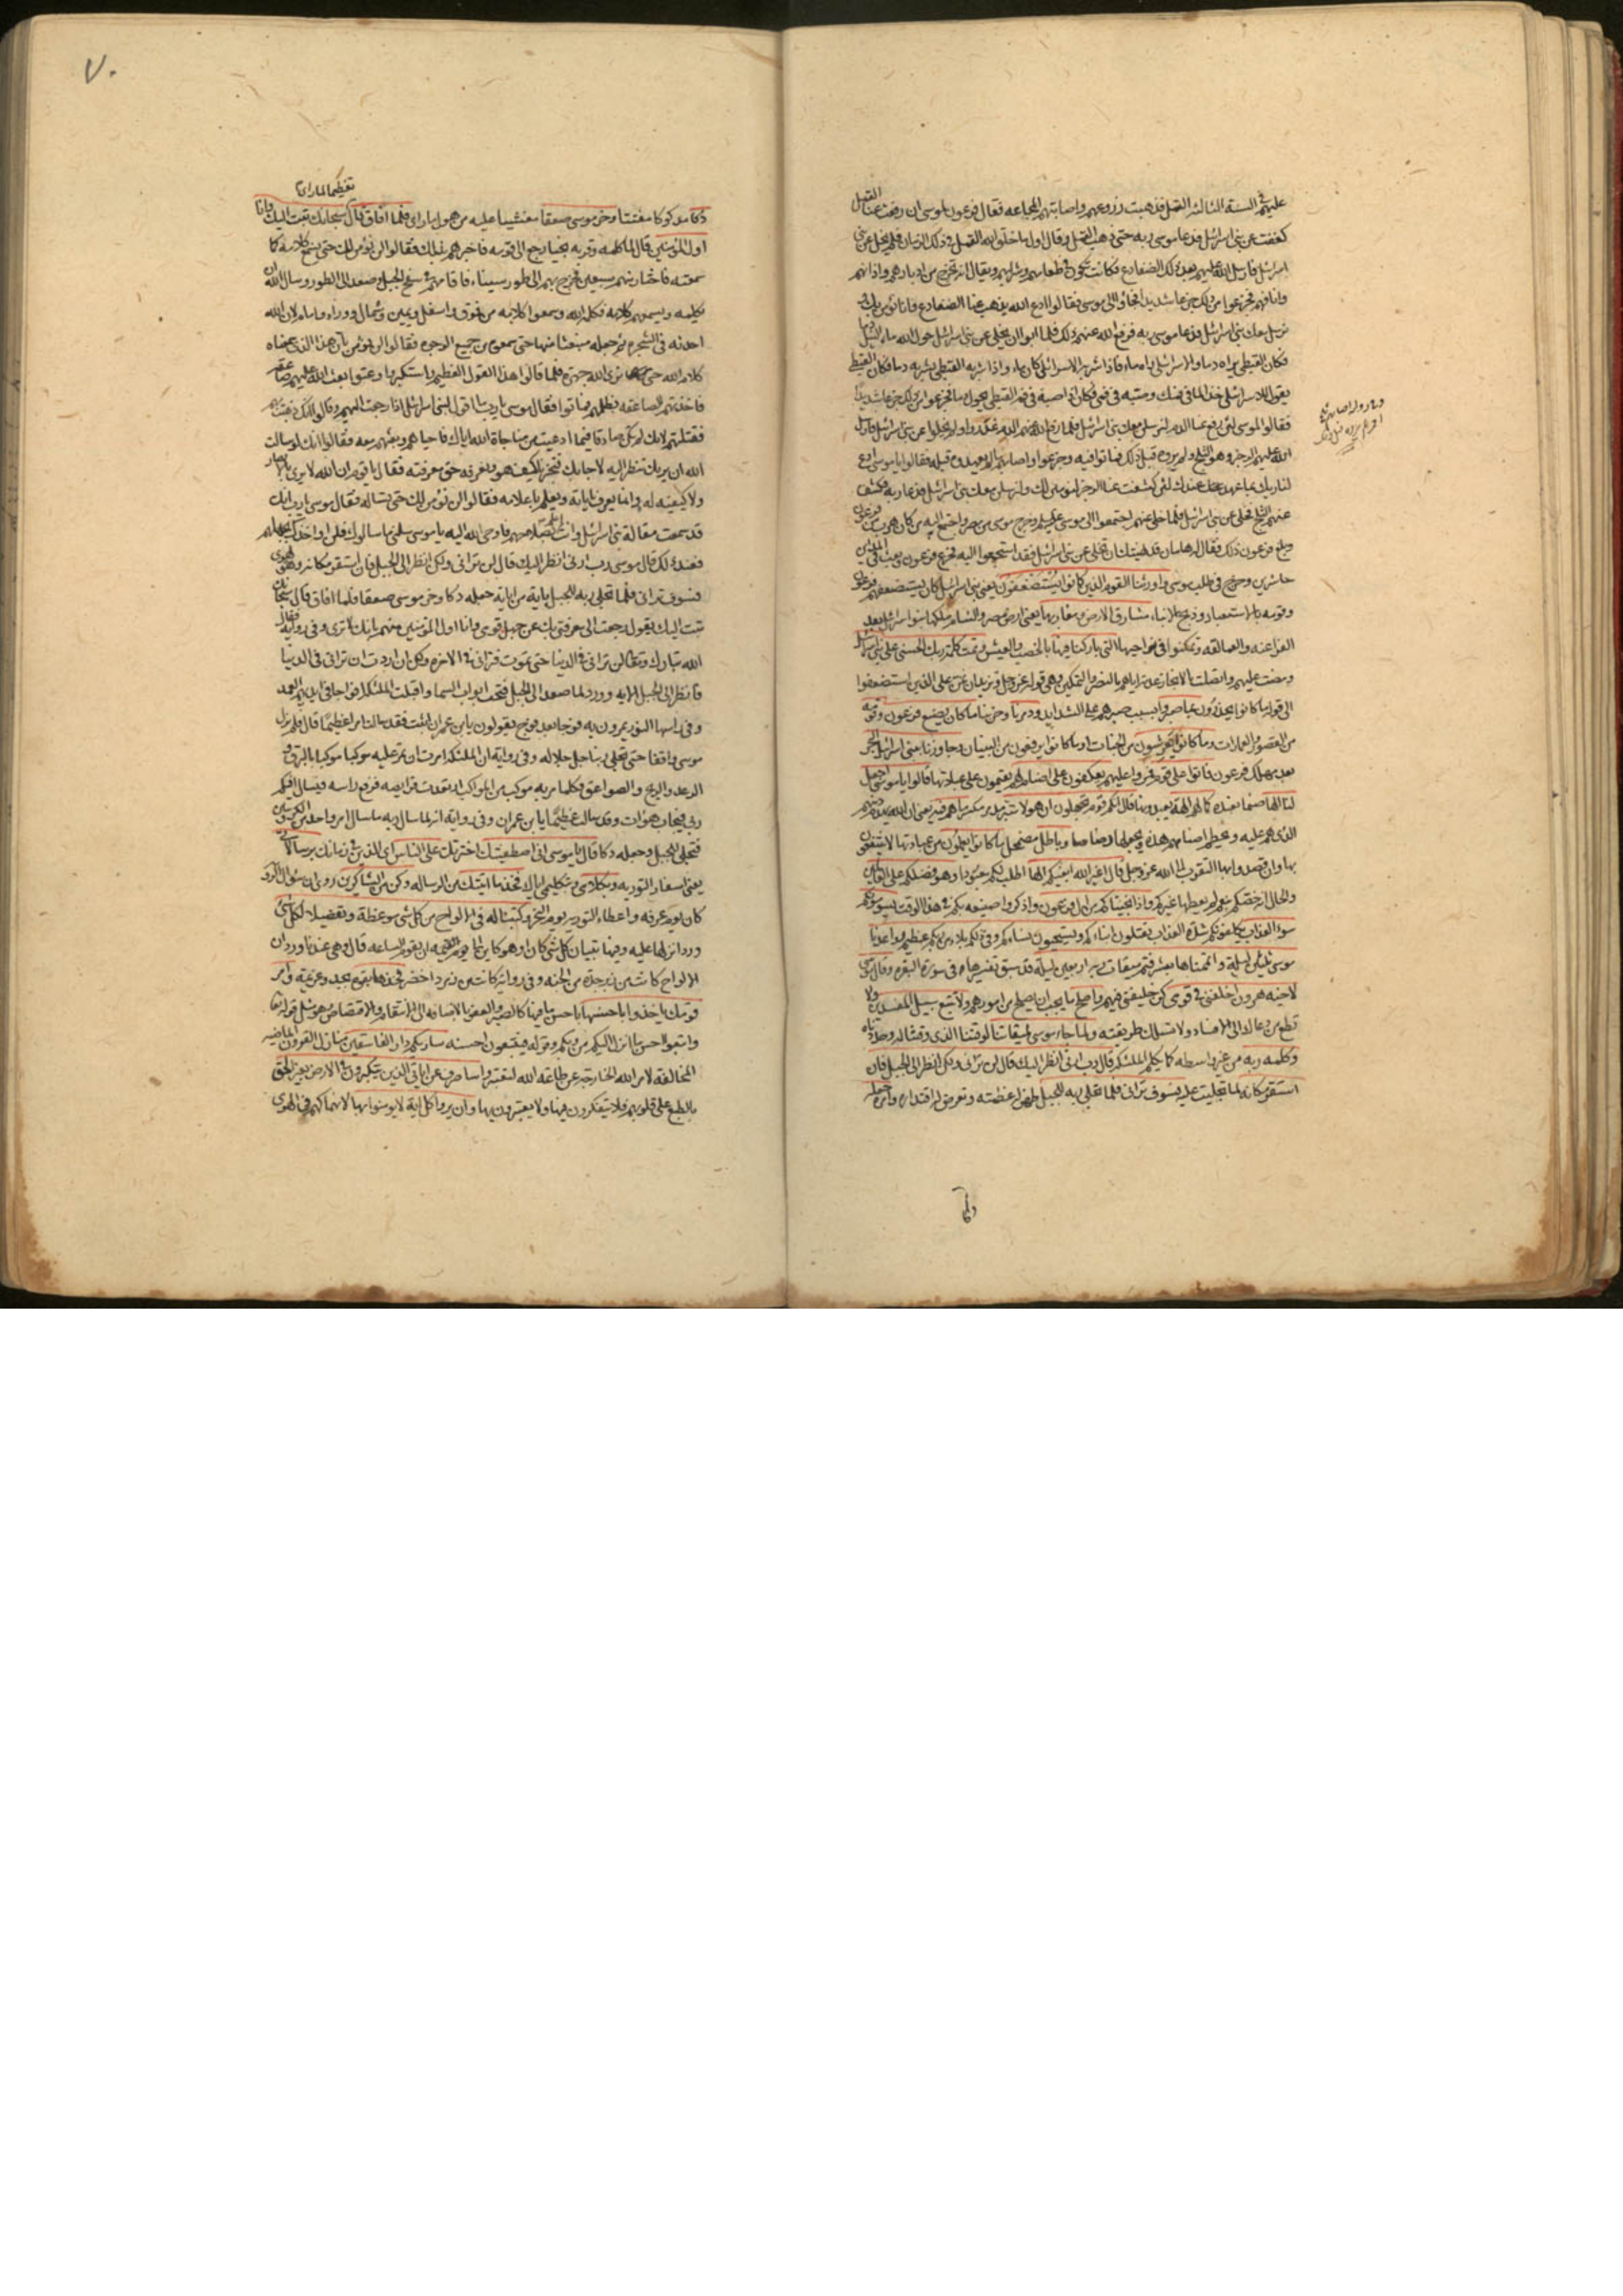 عليهم في السنة الثالثة القمل فذهبت زروعهم واصابتهم المجاعه فقال فرعون لموسى ان رفعت عنا القمل
كففت عن بني اسرائيل فدعا موسى ربه حتى ذهب القمل وقال اول ما خلق الله القمل في ذلك الزمان فلم يخل عن بني
اسرائيل فارسل الله عليهم بعد ذلك الضفادع فكانت تكون في طعامهم وشرابهم ويقال انها تخرج من ادبارهم واذانهم
وانافهم فجزعوا من ذلك جزعا شديدا فجاؤا الى موسى فقالوا ادع الله يذهب عنا الضفادع فانا نؤمن بك
نرسل معك بني اسرائيل فدعا موسى ربه فرفع الله عنهم ذلك فلما ابوا ان يخلى عن بني اسرائيل حول الله ماء النيل دما
فكان القبطي يراه دما والاسرائيلي يراه ماء فاذا شربه الاسرائيلي كان ماء واذا شربه القبطي يشربه دما فكان القبطي
يقول للاسرائيلي خذ الماء في فمك وصبه في فمي فكان اذا صبه في فم القبطي يحول دما فجزعوا من ذلك جزعا شديدا
فقالوا لموسى لئن رفع عنا الدم لنرسلن معك بني اسرائيل فلما رفع الله عنهم الدم غدروا ولم يخلوا عن بني اسرائيل فارسل
الله عليهم الرجز وهو الثلج ولم يروه قبل ذلك فماتوا فيه وجزعوا واصابهم ما لم يعهدوه قبله فقالوا يا موسى ادع
لنا ربك بما عهد عندك لئن كشفت عنا الرجز لنؤمنن لك ولنرسلن معك بني اسرائيل فدعا ربه فكشف
عنهم الثلج فخلى عن بني اسرائيل فلما خلى عنهم اجتمعوا الى موسى عليه السلام وخرج موسى من مصر واجتمع اليه من كان هرب من فرعون
وبلغ فرعون ذلك فقال له هامان قد نهيتك ان تخلى عن بني اسرائيل فقد استجمعوا اليه فجزع فرعون وبعث في المدائن
حاشرين وخرج في طلب موسى واورثنا القوم الذين كانوا يستضعفون يعني بني اسرائيل كان يستضعفهم فرعون
وقومه بالاستعباد وذبح الابناء مشارق الارض ومغاربها يعني ارض مصر والشام ملكها بنو اسرائيل بعد
الفراعنه والعمالقه وتمكنوا في نواحيها التي باركنا فيها بالخصب والعيش وتمت كلمة ربك الحسنى على بني اسرائيل
ومضت عليهم واتصلت بالانجاز عدته اياهم بالنصر والتمكين وهي قوله عز وجل ونريد ان نمن على الذين استضعفوا
الى قوله ما كانوا يحذرون بما صبروا بسبب صبرهم على الشدايد ودمرنا وخربنا ما كان يصنع فرعون وقومه
من القصور والعمارات وما كانوا يعرشون من الجنات او ما كانوا يرفعون من البنيان وجاوزنا ببني اسرائيل البحر
بعد مهلك فرعون فاتوا على قوم فمروا عليهم يعكفون على اصنام لهم يقيمون على عبادتها قالوا يا موسى اجعل
لنا الها صنما نعبده كما لهم الهة يعبدونها قال انكم قوم تجهلون ان هؤلاء متبر مدمر مكسر ما هم فيه يعني ان الله يهدم دينهم
الذي هم عليه ويحطم اصنامهم هذه ويجعلها رضاضا وباطل مضمحل ما كانوا يعملون من عبادتها لا ينتفعون
بها وان قصدوا بها التقرب الى الله عز وجل قال اغير الله ابغيكم الها اطلب لكم معبودا وهو فضلكم على العالمين
والحال انه خصكم بنعم لم يعطها غيركم واذ انجيناكم من ال فرعون واذكروا صنيعه بكم في هذا الوقت يسومونكم
سوء العذاب يكلفونكم شدة العذاب يقتلون ابناءكم ويستحيون نساءكم وفي ذلكم بلاء من ربكم عظيم وواعدنا
موسى ثلثين ليلة واتممناها بعشر فتم ميقات ربه اربعين ليلة قد سبق تفسيرها في سورة البقره وقال موسى
لاخيه هرون اخلفني في قومي كن خليفتي فيهم واصلح ما يجب ان يصلح من امورهم ولا تتبع سبيل المفسدين ولا
تطع من دعاك الى الافساد ولا تسلك طريقته ولما جاء موسى لميقاتنا لوقتنا الذي وقتناله وحددناه
وكلمه ربه من غير واسطه كما يكلم الملئكه قال رب ارني انظر اليك قال لن تراني ولكن انظر الى الجبل فان
استقر مكانه لما تجليت عليه فسوف تراني فلما تجلى ربه للجبل ظهر له عظمته وتعرض له اقتداره وامره جعله
ولم يروه قبل ذلك
ولما
٧٠
تعظيما لما راى
دكا مدكوكا مفتتا وخر موسى صعقا مغشيا عليه من هول ما راى فلما افاق قال سبحانك تبت اليك وانا
اول المؤمنين قال لما كلمه وقربه نجيا رجع الى قومه فاخبرهم بذلك فقالوا لن نؤمن لك حتى نسمع كلامه كما
سمعته فاختار منهم سبعين فخرج بهم الى طور سيناء فاقامهم في سفح الجبل وصعد الى الطور وسال الله ان
يكلمه ويسمعهم كلامه فكلمه الله وسمعوا كلامه من فوق واسفل ويمين وشمال ووراء وامام لان الله
احدثه في الشجره ثم جعله منبعثا منها حتى سمعوه من جميع الوجوه فقالوا لن نؤمن بان هذا الذي سمعناه
كلام الله حتى نرى الله جهرة فلما قالوا هذا القول العظيم واستكبروا وعتوا بعث الله عليهم صاعقه
فاخذتهم الصاعقه بظلمهم فماتوا فقال موسى يا رب ما اقول لبني اسرائيل اذا رجعت اليهم وقالوا انك ذهبت بهم
فقتلتهم لانك لم تكن صادقا فيما ادعيت من مناجاة الله اياك فاحياهم وبعثهم معه فقالوا انك لو سالت
الله ان يريك تنظر اليه لاجابك فتخبرنا كيف هو ونعرفه حق معرفته فقال يا قوم ان الله لا يرى بالابصار
ولا كيفية له وانما يعرف باياته ويعلم باعلامه فقالوا لن نؤمن لك حتى تساله فقال موسى يا رب انك
قد سمعت مقالة بني اسرائيل وانت اعلم بصلاحهم فاوحى الله اليه يا موسى سلني ما سالوك فلن اواخذك بجهلهم
فعند ذلك قال موسى رب ارني انظر اليك قال لن تراني ولكن انظر الى الجبل فان استقر مكانه وهو يهوى
فسوف تراني فلما تجلى ربه للجبل باية من اياته جعله دكا وخر موسى صعقا فلما افاق قال سبحانك
تبت اليك يقول رجعت الى معرفتي بك عن جهل قومي وانا اول المؤمنين منهم بانك لا ترى وفي رواية فقال
الله تبارك وتعالى لن تراني في الدنيا حتى تموت فتراني في الاخرة ولكن ان اردت ان تراني في الدنيا
فانظر الى الجبل الايه وورد لما صعد الى الجبل فتحت ابواب السما واقبلت الملئكه افواجا في ايديهم العمد
وفي راسها النور يمرون به فوجا بعد فوج يقولون يا بن عمران اثبت فقد سالت امرا عظيما قال فلم يزل
موسى واقفا حتى تجلى ربنا جل جلاله وفي رواية ان الملئكه امرت ان تمر عليه موكبا موكبا بالبرق و
الرعد والريح والصواعق فكلما مر به موكب من المواكب ارتعدت فرايصه فرفع راسه فيسال افيكم
ربي فيجاب هو ات وقد سالت عظيما يا بن عمران وفي رواية انه لما سال ربه ما سال امر واحدا من الكروبيين
فتجلى للجبل وجعله دكا قال يا موسى اني اصطفيتك اخترتك على الناس اي الذين في زمانك برسالاتي
يعني اسفار التوريه وبكلامي وبتكليمي اياك فخذ ما اتيتك من الرساله وكن من الشاكرين روى ان سؤال الرؤيه
كان يوم عرفه واعطاء التوريه يوم النحر وكتبنا له في الالواح من كل شيء موعظة وتفصيلا لكل شيء
ورد انزلها عليه وفيها تبيان كل شي كان او هو كاين الى يوم القيمه ان تقوم الساعه قال وهي عندنا وورد ان
الالواح كانت من زبرجدة من الجنه وفي رواية كانت من زمرد اخضر فخذها بقوة بجد وعزيمة وامر
قومك ياخذوا باحسنها باحسن ما فيها كالصبر والعفو بالاضافه الى الانتقام والاقتصاص وهو مثل قوله تعالى
واتبعوا احسن ما انزل اليكم من ربكم وقوله فيتبعون احسنه ساريكم دار الفاسقين منازل القرون الماضيه
المخالفه لامر الله الخارجه عن طاعه الله لتعتبروا ساصرف عن اياتي الذين يتكبرون في الارض بغير الحق
بالطبع على قلوبهم فلا يتفكرون فيها ولا يعتبرون بها وان يروا كل اية لا يؤمنوا بها لانهماكهم في الهوى